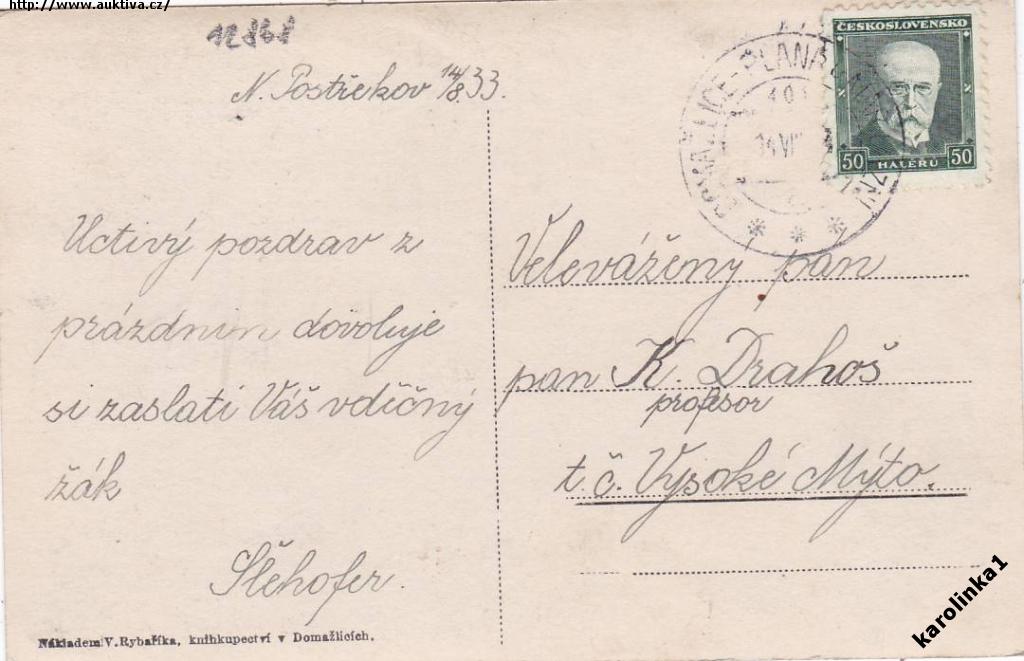 http://www.auktiva.cz/
12868
N. Postřekov 14/8 33.
Uctivý pozdrav z
prázdnin dovoluje
si zaslati Váš vděčný
žák
Slěhofer.
Nákladem V. Rybaříka, knihkupectví v Domažlicích.
ČESKOSLOVENSKO
50 HALÉŘŮ 50
PLANÁ
Velevážený pan
pan K. Drahoš
profesor
t. č. Vysoké Mýto.
karolinka1